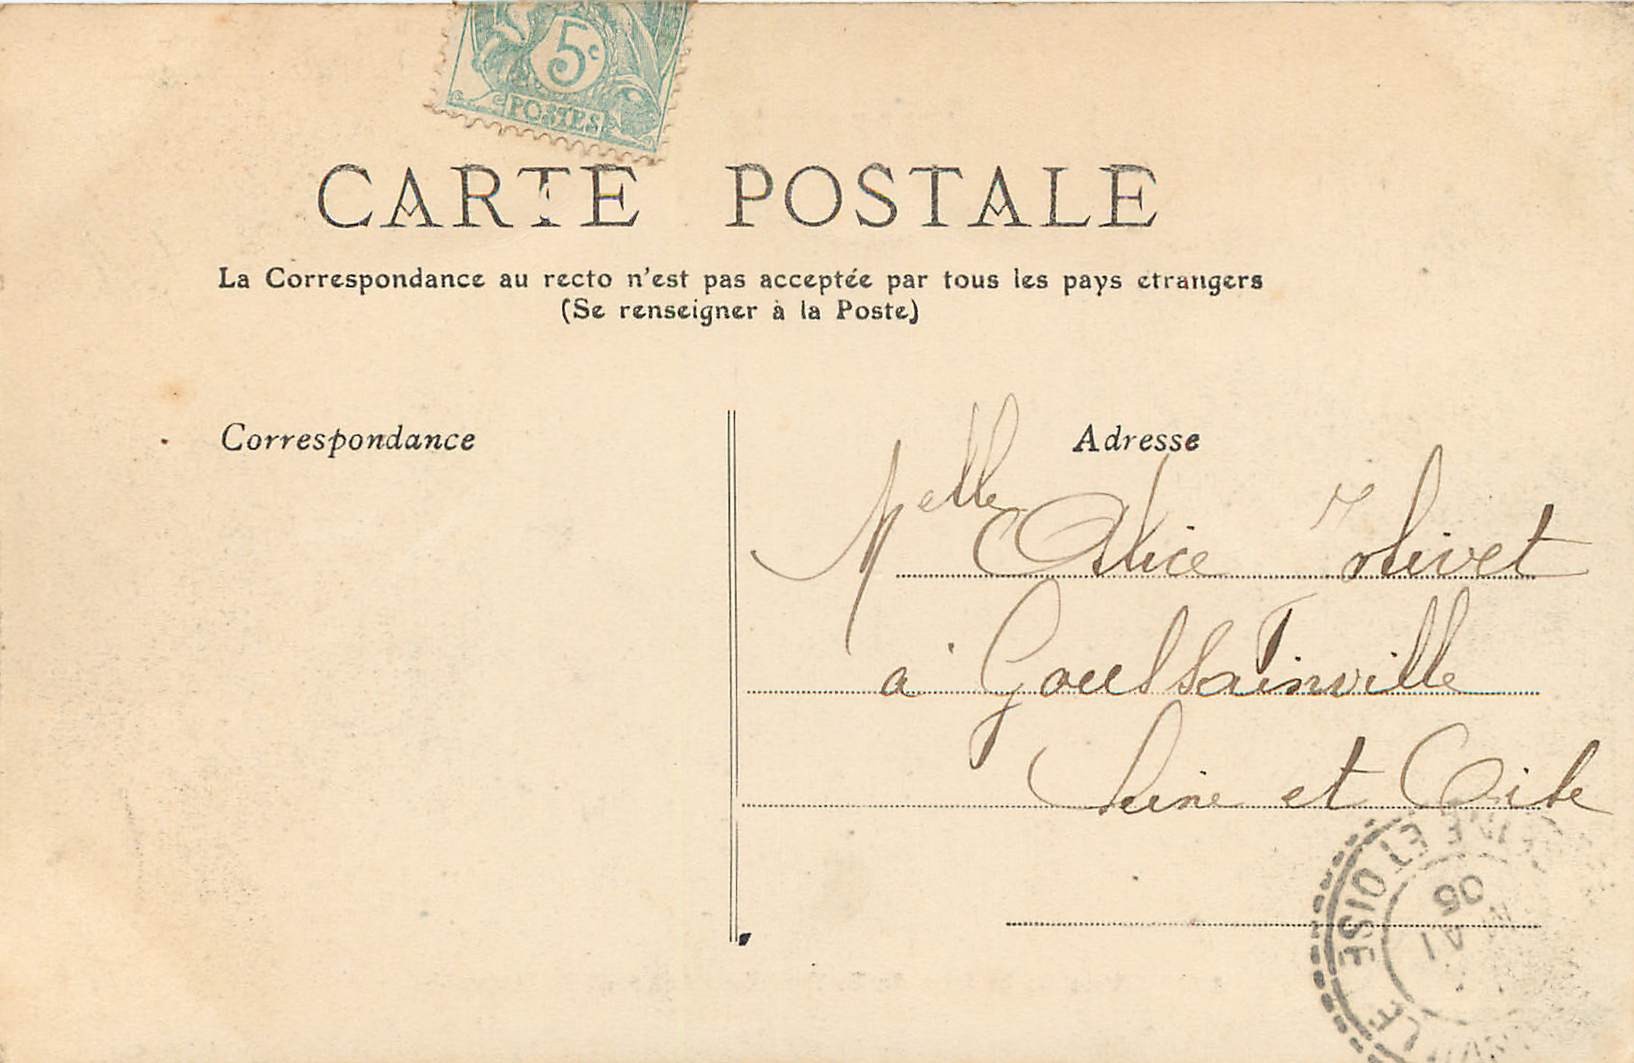 5c
POSTES
CARTE POSTALE
La Correspondance au recto n'est pas acceptée par tous les pays étrangers
(Se renseigner à la Poste)
Correspondance
Adresse
Melle Alice
à Goussainville
Seine et Oise
SEINE ET OISE
05
MAI